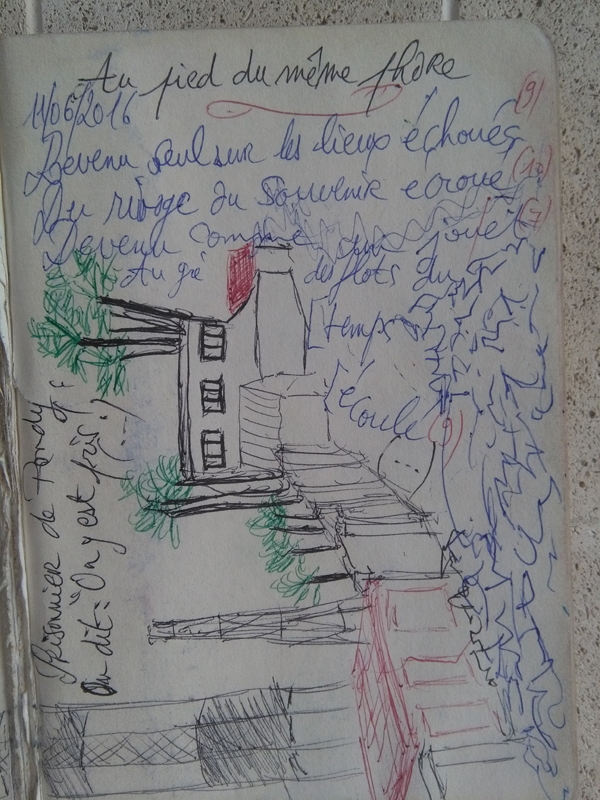 Au pied du même phare
11/06/2016
(9)
Devenu seul sur les lieux échoués
(10)
Du rivage du souvenir écroué
(7)
Devenu comme un jouet
Au gré des flots du
[temps
écoulé
Prisonnier de Pondy
On dit: "On y est pris!"